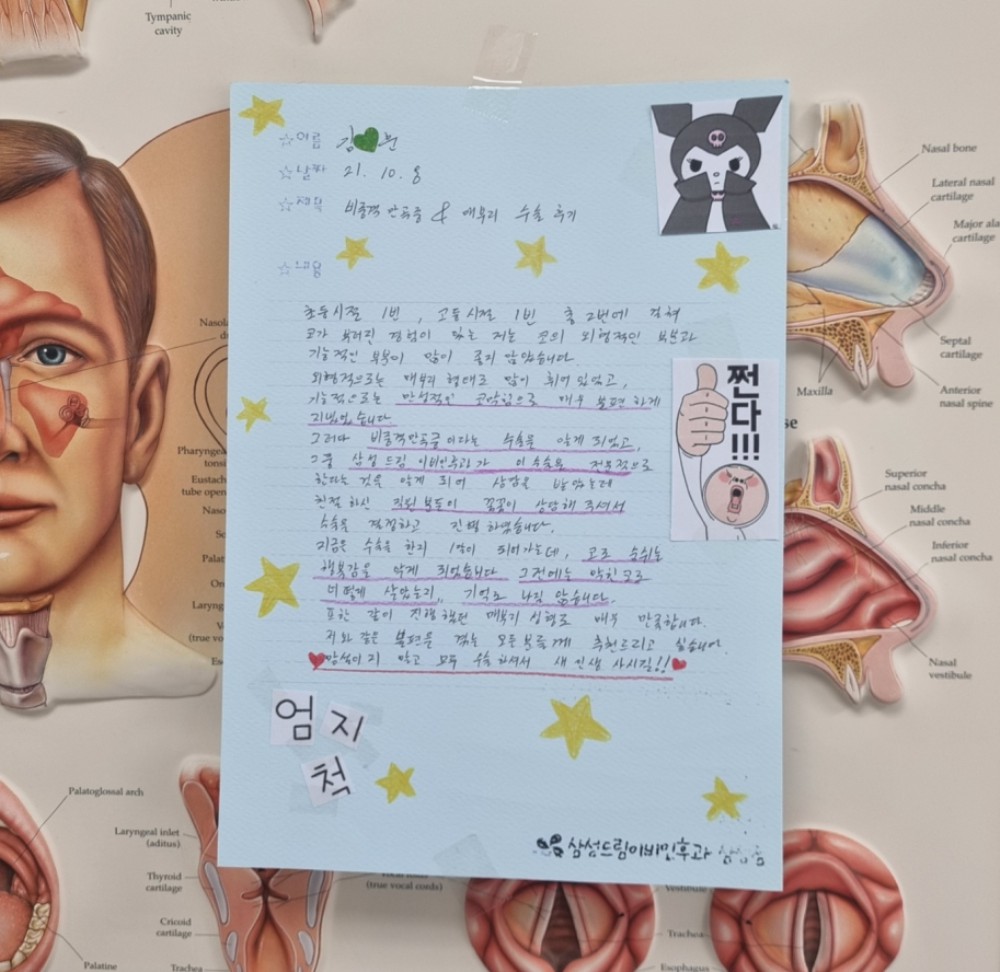 Tympanic
cavity
☆이름 김♥분
☆날짜 21. 10. 8
☆제목 비중격만곡증 & 매부리 수술 후기
☆내용
초등시절 1번, 고등시절 1번 총 2번에 걸쳐
코가 부러진 경험이 있는 저는 코의 외형적인 부분과
기능적인 부분이 많이 좋지 않았습니다.
외형적으로는 매부리 형태로 많이 휘어 있었고,
기능적으로는 만성적인 코막힘으로 매우 불편하게
지냈었습니다.
그러다 비중격만곡증이라는 수술을 알게 되었고,
그중 삼성드림이비인후과가 이 수술을 전문적으로
한다는 것을 알게 되어 상담을 받았는데
친절하신 직원분들이 꼼꼼이 상담해 주셔서
수술을 결정하고 진행하였습니다.
지금은 수술을 한지 1달이 되어가는데, 코로 숨쉬는
행복감을 알게 되었습니다. 그전에는 막힌코로
어떻게 살았는지, 기억조차 나질 않습니다.
또한 같이 진행했던 매부리 성형도 매우 만족합니다.
저와 같은 불편을 겪는 모든분들께 추천드리고 싶습니다.
♥망설이지 말고 모두 수술하셔서 새 인생 사시길!!♥
쩐
다!!!
엄지
척
삼성드림이비인후과
Nasal bone
Lateral nasal
cartilage
Major ala
cartilage
Septal
cartilage
Anterior
nasal spine
Maxilla
se
Superior
nasal concha
Middle
nasal concha
Inferior
nasal concha
Nasal
vestibule
Nasol
Pharynge
tonsi
Eustach
tube open
Naso
Palat
Laryng
(true vo
Palatoglossal arch
Laryngeal inlet
(aditus)
Thyroid
cartilage
Cricoid
cartilage
Trachea
Palatine
(true vocal cords)
Vestibule
Trachea
Esophagus